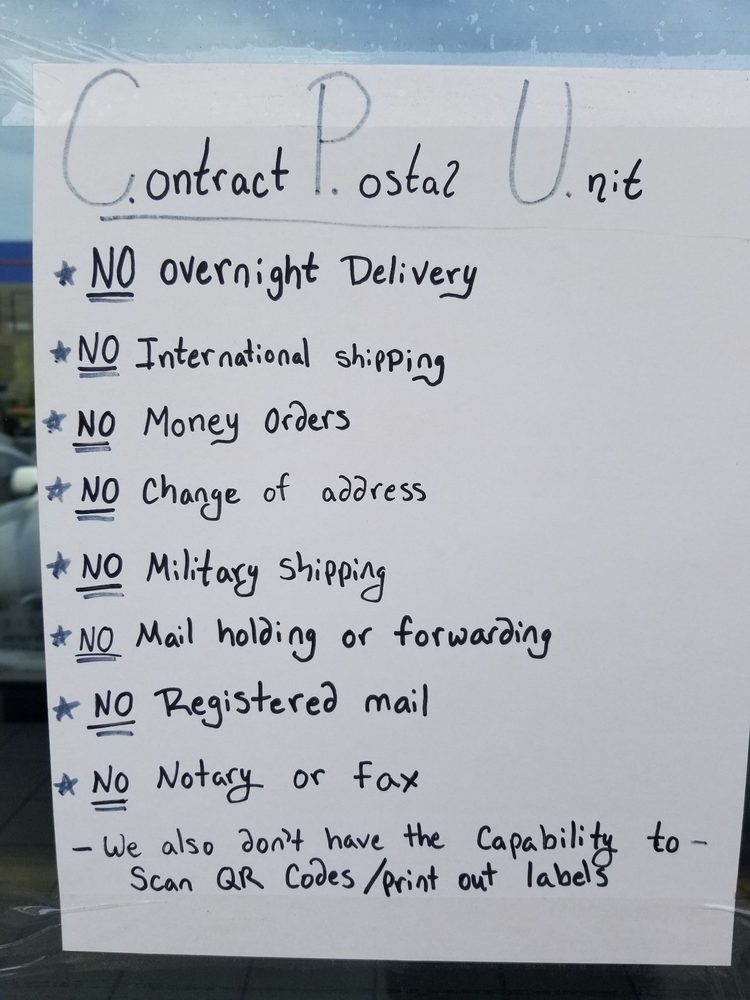 C.ontract P.ostal U.nit
* NO overnight Delivery
* NO International shipping
* NO Money Orders
* NO Change of address
* NO Military shipping
* NO Mail holding or forwarding
* NO Registered mail
* No Notary or fax
- We also don't have the Capability to -
Scan QR Codes/print out labels